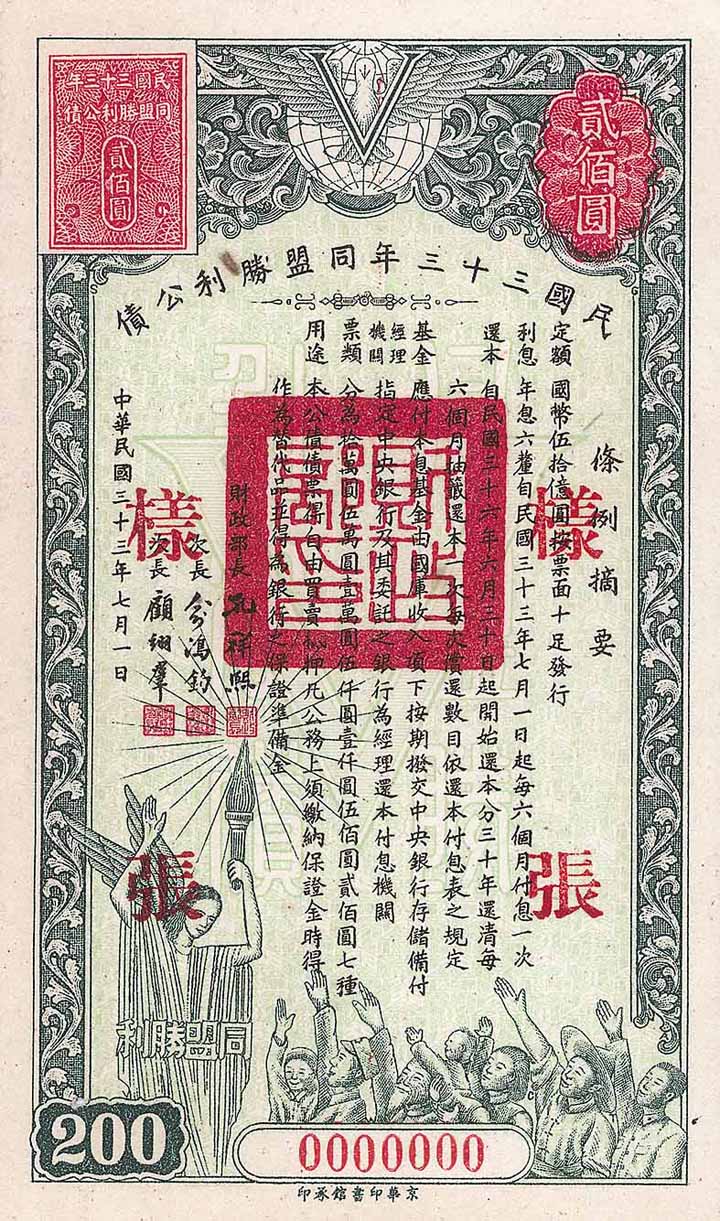 民國三十三年
同盟勝利公債
貳佰圓
貳佰圓
民國三十三年同盟勝利公債
條例摘要
定額 國幣伍拾億圓按票面十足發行
利息 年息六釐自民國三十三年七月一日起每六個月付息一次
還本 自民國三十六年六月三十日起開始還本分三十年還清每
六個月抽籤還本一次每次償還數目依還本付息表之規定
基金 應付本息基金由國庫收入項下按期撥交中央銀行存儲備付
經理機關 指定中央銀行及其委託之銀行為經理還本付息機關
票類 分為拾萬圓伍萬圓壹萬圓伍仟圓壹仟圓伍佰圓貳佰圓七種
用途 本公債債票得自由買賣抵押凡公務上須繳納保證金時得
作為替代品並得為銀行之保證準備金
財政部長 孔祥熙
次長 俞鴻鈞
次長 顧翊羣
中華民國三十三年七月一日
樣
張
樣
張
同盟勝利
200
0000000
京華印書館承印